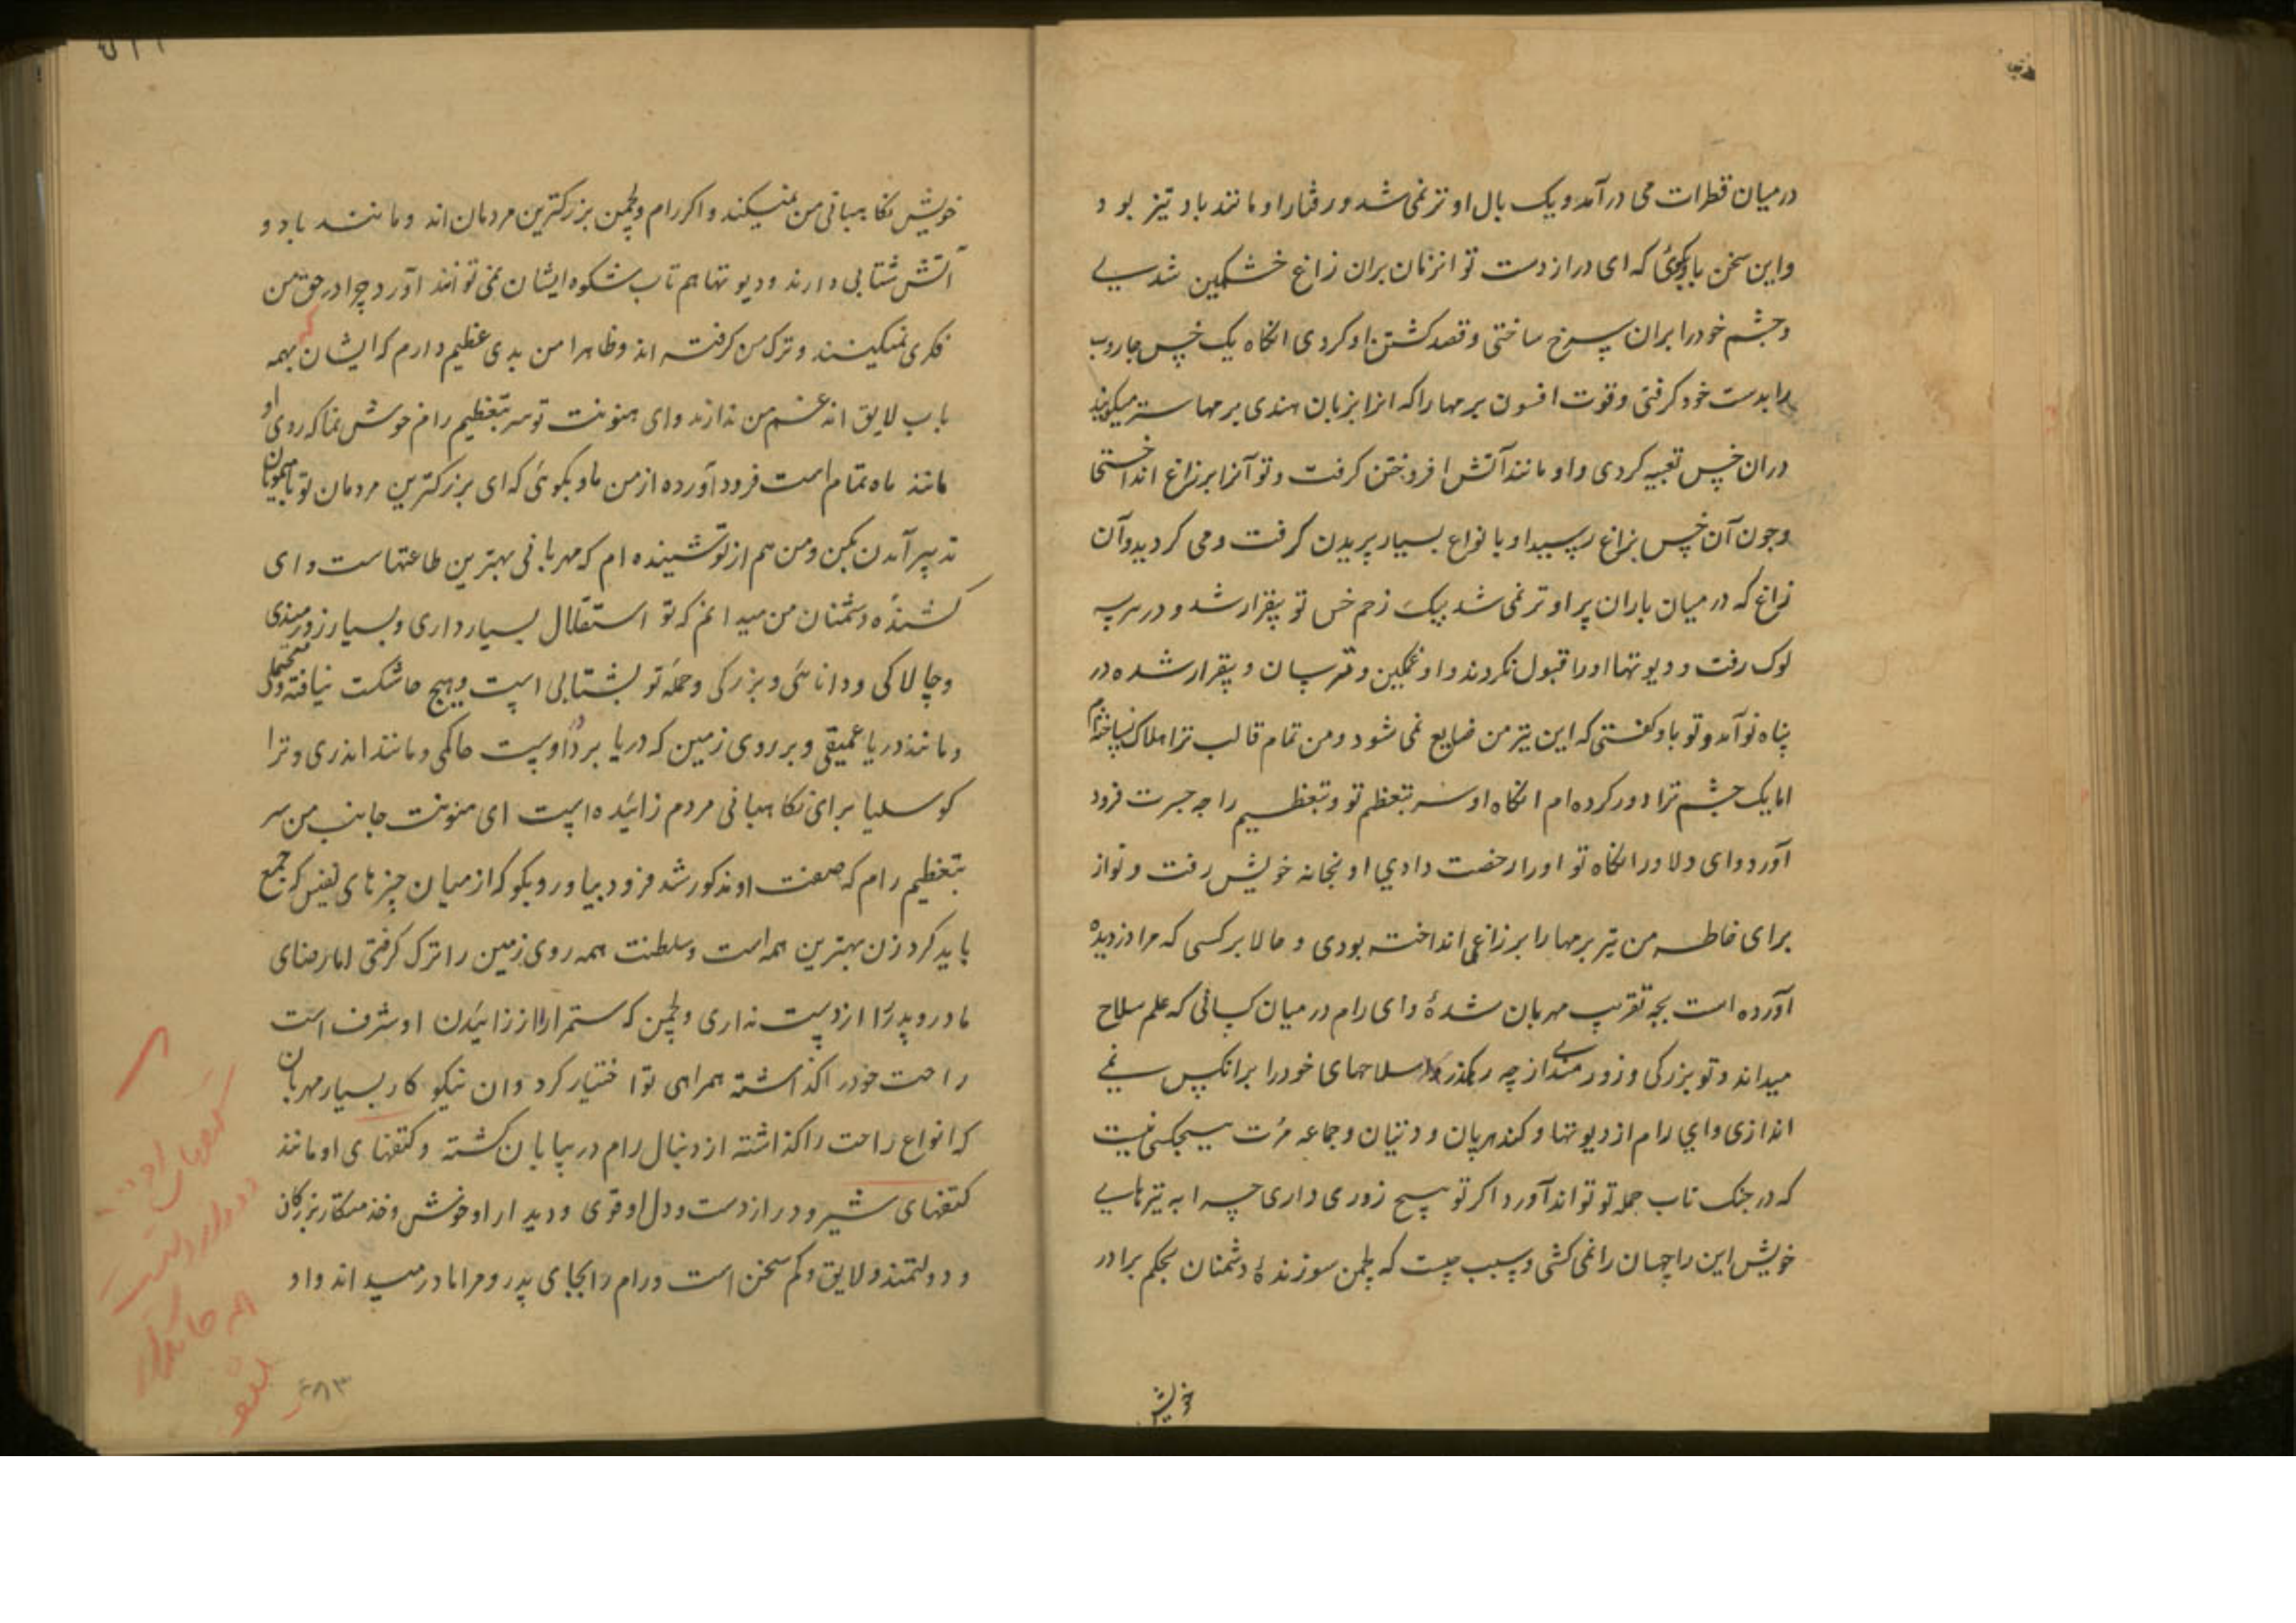 درمیان قطرات می درآمد و یک بال او تر نمی شد و رفتار او مانند باد تیز بود
و این سخن باو بگوئی که ای دراز دست تو انزمان بران زاغ خشمکین شدی
و چشم خود را بران سرخ ساختی و قصد کشتن او کردی انکاه یک خس جاروب
را بدست خود کرفتی و قوت افسون برمها را که انرا بزبان هندی برمهاستر میکویند
دران خس تعبیه کردی و او مانند آتش افروختن کرفت و تو آنرا بر زاغ انداختی
و چون آن خس بزاغ رسید او بانواع بسیار پریدن کرفت و می کردید و آن
زاغ که در میان باران پر او تر نمی شد بیک زخم خس تو بیقرار شد و در سه
لوک رفت و دیوتها او را قبول نکردند و او غمکین و ترسان و بیقرار شده در
پناه تو آمد و تو باو کفتی که این تیر من ضایع نمی شود و من تمام قالب ترا هلاک نساخته‌ام
اما یک چشم ترا دور کرده ام انکاه او سر بتعظیم تو و بتعظیم راجه جسرت فرود
آورد و ای دلاور انکاه تو او را رخصت دادی او بخانه خویش رفت و تو از
برای خاطر من تیر برمها را بر زاغی انداخته بودی و حالا بر کسی که مرا دزدیده
آورده است بچه تقریب مهربان شدهٔ و ای رام در میان کسانی که علم سلاح
میدانند و تو بزرکی و زورمندی از چه رهکذر سلاحهای خود را برانکس نمی
اندازی و ای رام از دیوتها و کندهربان و دتیان و جماعه مرُت هیچکس نیست
که در جنک تاب حمله تو تواند آورد اکر تو هیچ زوری داری چرا به تیرهای
خویش این راچهسان را نمی کشی و سبب چیست که لچمن سوزندهٔ دشمنان بحکم برادر
خویش
خویش نکاهبانی من نمیکند و اکر رام و لچمن بزرکترین مردمان اند و مانند باد و
آتش شتابی دارند و دیوتها هم تاب شکوه ایشان نمی توانند آورد چرا در حق من
فکری نمیکنند و ترک من کرفته اند و ظاهرا من بدی عظیم دارم که ایشان بهمه
باب لایق اند غم من ندارند و ای هنونت تو سر بتعظیم رام خوش نما که روی او
مانند ماه تمام است فرود آورده از من باو بکوئی که ای بزرکترین مردمان تو با میمونان
تدبیر آمدن بکن و من هم از تو شنیده ام که مهربانی بهترین طاعتهاست و ای
کشندهٔ دشمنان من میدانم که تو استقلال بسیار داری و بسیار زورمندی
و چالاکی و دانائی و بزرکی و حمله تو بشتابی است و هیچ جا شکست نیافته و متحملی
و مانند دریا عمیقی و بر روی زمین که دریا بر دور اوست حاکمی و مانند اندری و ترا
کوسلیا برای نکاهبانی مردم زائیده است ای هنونت جانب من سر
بتعظیم رام که صفت او مذکور شد فرود بیاور و بکو که از میان چیزهای نفیس که جمع
باید کرد زن بهترین همه است و سلطنت همه روی زمین را ترک کرفتی اما رضای
مادر و پدر را از دست نداری و لچمن که ستمرا را از زائیدن او شرف است
راحت خود را کذاشته همراهی تو اختیار کرد و ان نیکو کار بسیار مهربان
که انواع راحت را کذاشته از دنبال رام در بیابان کشته و کتفهای او مانند
کتفهای شیر و دراز دست و دل او قوی و دیدار او خوش و خدمتکار بزرکان
و دولتمند و لایق و کم سخن است و رام را بجای پدر و مرا مادر میداند و او